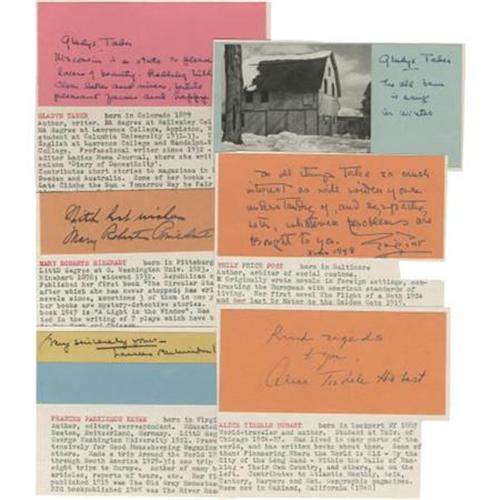 Gladys Taber
Wisconsin is a state to please
lovers of beauty. Rolling hills
clear lakes and rivers, white
pleasant farms and happy
GLADYS TABER born in Colorado 1899
Author, writer. BA degree at Wellesley Col
MA degree at Lawrence College, Appleton, W
student at Columbia University 1931-33. T
English at Lawrence College and Randolph-M
College. Professional writer since 1932 -
editor Ladies Home Journal, where she writ
column "Diary of Domesticity".
Contributes short stories to magazines in E
Sweden and Australia. Some of her books -
Late Climbs the Sun - Tomorrow May be Fair
With best wishes
Mary Roberts Rinehart
MARY ROBERTS RINEHART born in Pittsburg
LittD degree at G. Washington Univ. 1923.
Rinehart 1896; widowed 1932. Republican
Published her first book "The Circular Sta
after which she has never stopped; has wri
novels since, sometimes 3 of them in one y
her books are mystery-detective stories.
book 1947 is "A Light in the Window". Has
ted in the writing of 7 plays which have b
Very sincerely yours
Frances Parkinson
FRANCES PARKINSON KEYES born in Virgi
Author, editor, correspondent. Educated
Boston, Switzerland, Germany. LittD deg
George Washington University 1921. Presen
tensively for Good Housekeeping Magazine
others. Made a trip around the World 19
through South America 1929- also nume
eight trips to Europe. Author of many
articles, reports of tours, etc. Her f
published 1919 was The Old Gray Homestea
published 1945 was The River Road
Gladys Taber
The old barn
is snug
in winter
To do all things takes so much
interest as will widen your
understanding of, and sympathy
with, whatever problems are
brought to you.
1948
Emily Post
EMILY PRICE POST born in Baltimore
Author, arbiter of social customs.
Originally wrote novels in foreign settings, con-
trasting the European with American standards of
living. Her first novel The Flight of a Moth 1904
and her last By Motor to the Golden Gate 1915.
Kind regards
to you
Alice Tisdale Hobart
ALICE TISDALE HOBART born in Lockport NY 1882
World-traveler and author. Student at Univ. of
Chicago 1904-07. Has lived in many parts of the
world, and has written books about them. Some of
them: Pioneering Where the World is Old - By the
City of the Long Sand - Within the Walls of Nan-
king - Their Own Country, and others, as on the
left. Contributes to Atlantic Monthly, Asia,
Century, Harpers and Nat. Geographic magazines.
Home now in Oakland, California (1948)